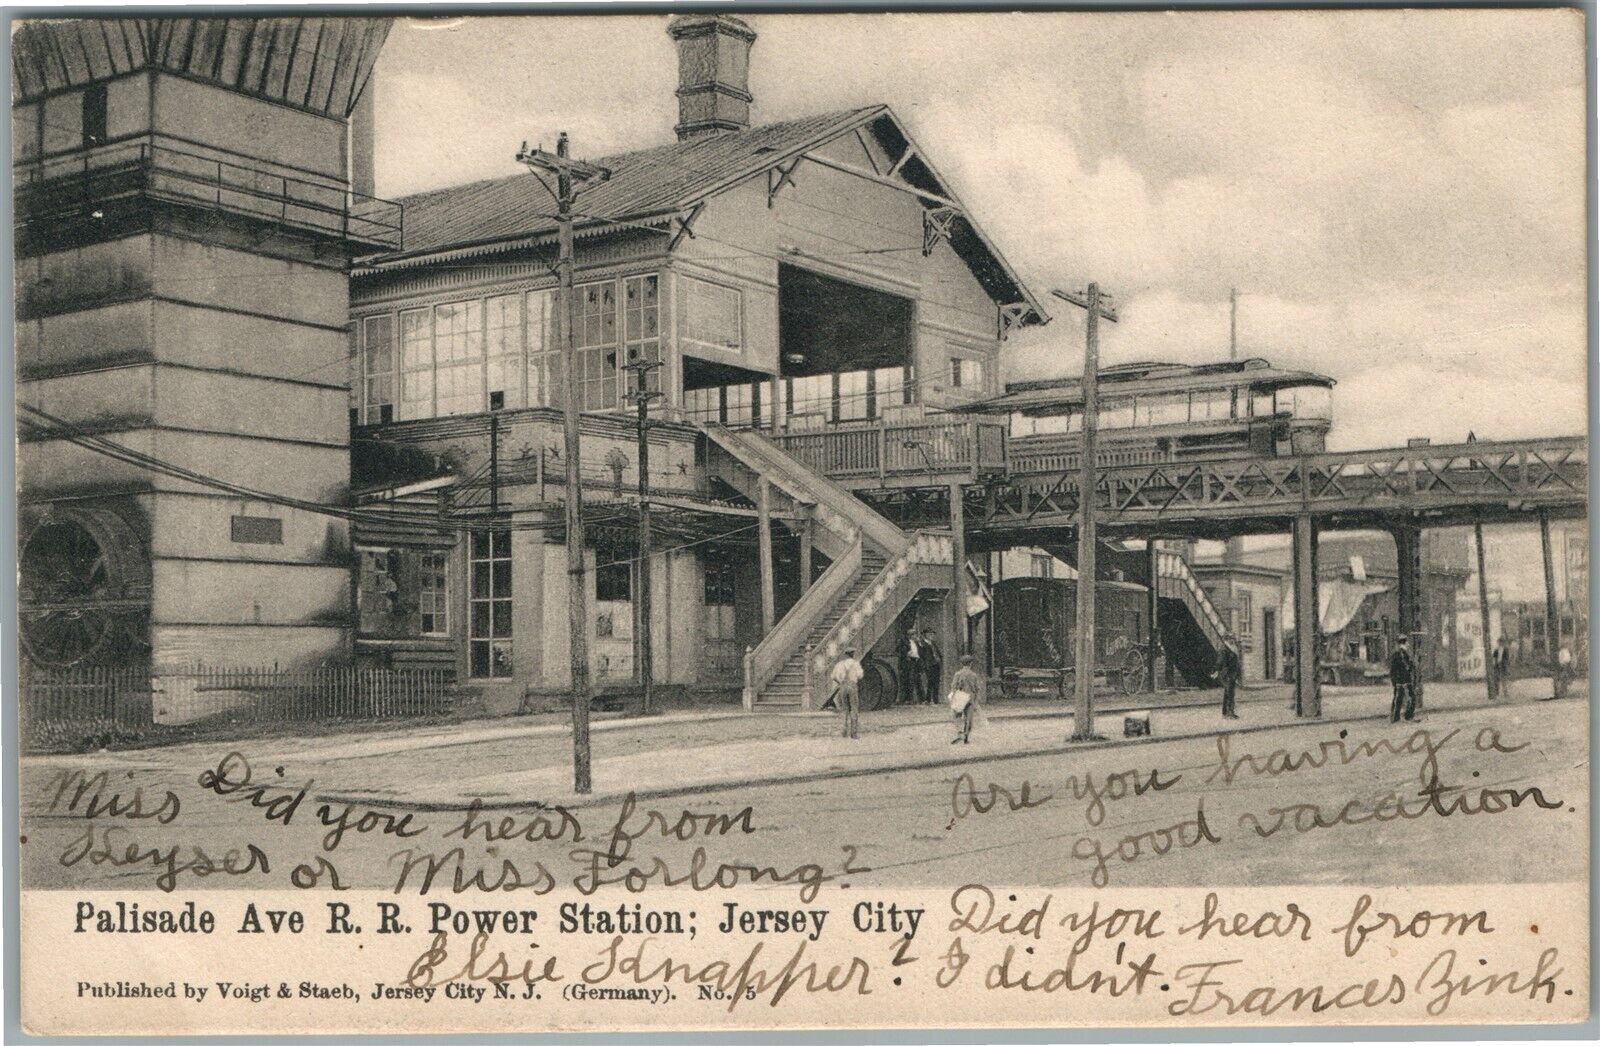 Miss Did you hear from
Keyser or Miss Forlong?
Are you having a
good vacation.
Palisade Ave R. R. Power Station; Jersey City
Did you hear from
Elsie Knapper? I didn't.
Frances Zink.
Published by Voigt & Staeb, Jersey City N. J. (Germany). No. 5